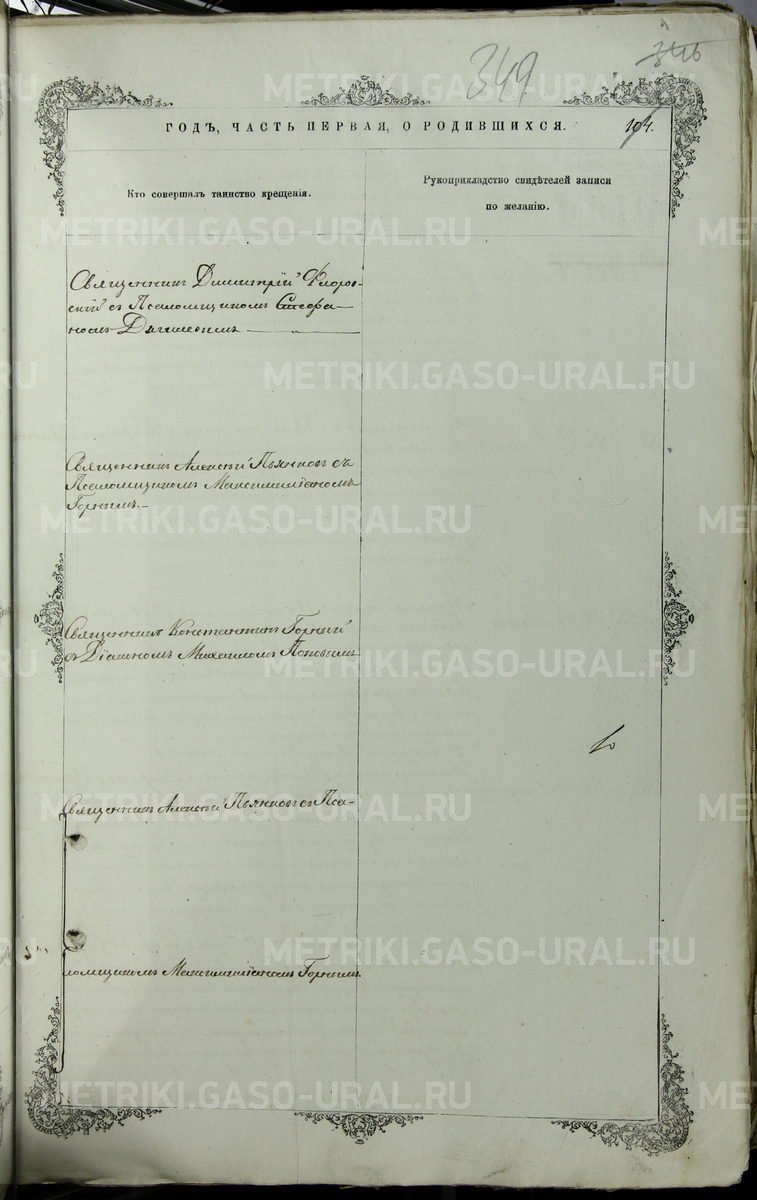 349
346
ГОДЪ, ЧАСТЬ ПЕРВАЯ, О РОДИВШИХСЯ.
104.
Кто совершалъ таинство крещенія.
Рукоприкладство свидѣтелей записи
по желанію.
Священникъ Димитрій Флоров-
скій съ Псаломщикомъ Стефа-
номъ
Священникъ Алексѣй Пьянковъ съ
Псаломщикомъ Максимиліаномъ
Горнымъ.
Священникъ Константинъ Горный
съ Діакономъ Михаиломъ Поповымъ
Священникъ Алексѣй Пьянковъ съ Пса-
ломщикомъ Максимиліаномъ Горнымъ.
METRIKI.GASO-URAL.RU